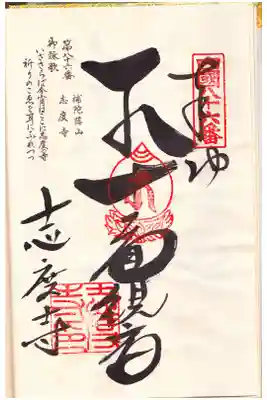 四國八十六番
奉納
十一面観音
志度寺
第八十六番
補陀落山
志度寺
御詠歌
いざさらば今宵はここに志度の寺
祈りのこゑを耳にふれつつ